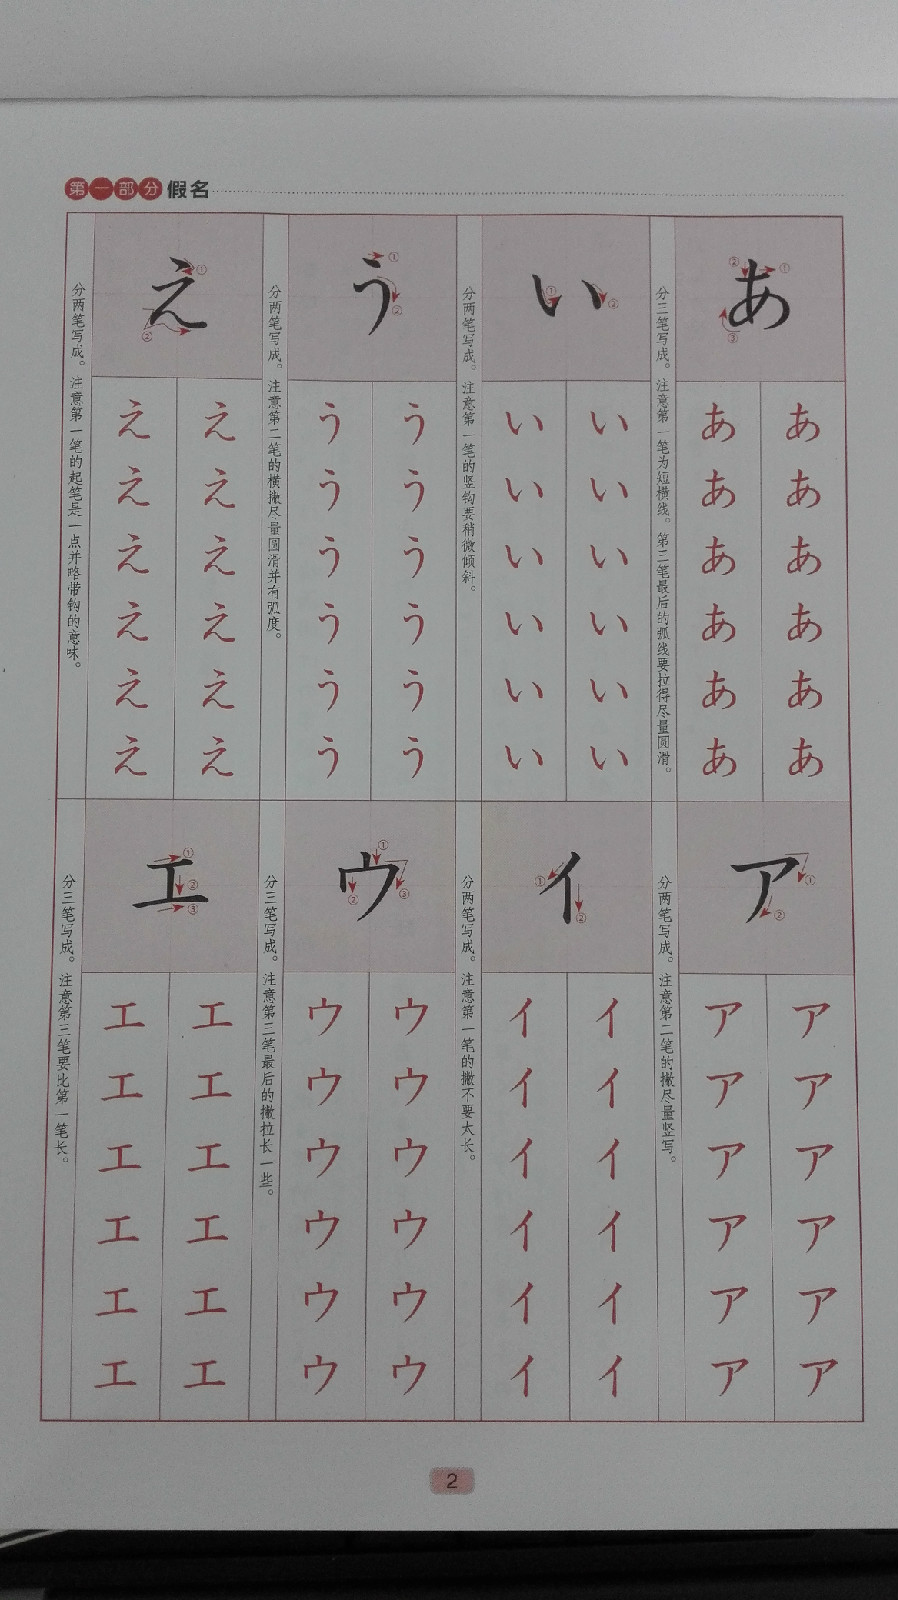 第一部分 假名
あ
① ② ③
分三笔写成。注意第一笔为短横线。第三笔最后的弧线要拉得尽量圆滑。
ああああああ
ああああああ
い
① ②
分两笔写成。注意第一笔的竖钩要稍微倾斜。
いいいいいい
いいいいいい
う
① ②
分两笔写成。注意第二笔的横撇尽量圆滑并有弧度。
うううううう
うううううう
え
① ②
分两笔写成。注意第一笔的起笔是一点并略带钩的意味。
ええええええ
ええええええ
ア
① ②
分两笔写成。注意第二笔的撇尽量竖写。
アアアアアア
アアアアアア
イ
① ②
分两笔写成。注意第一笔的撇不要太长。
イイイイイイ
イイイイイイ
ウ
① ② ③
分三笔写成。注意第三笔最后的撇拉长一些。
ウウウウウウ
ウウウウウウ
エ
① ② ③
分三笔写成。注意第三笔要比第一笔长。
エエエエエエ
エエエエエエ
2